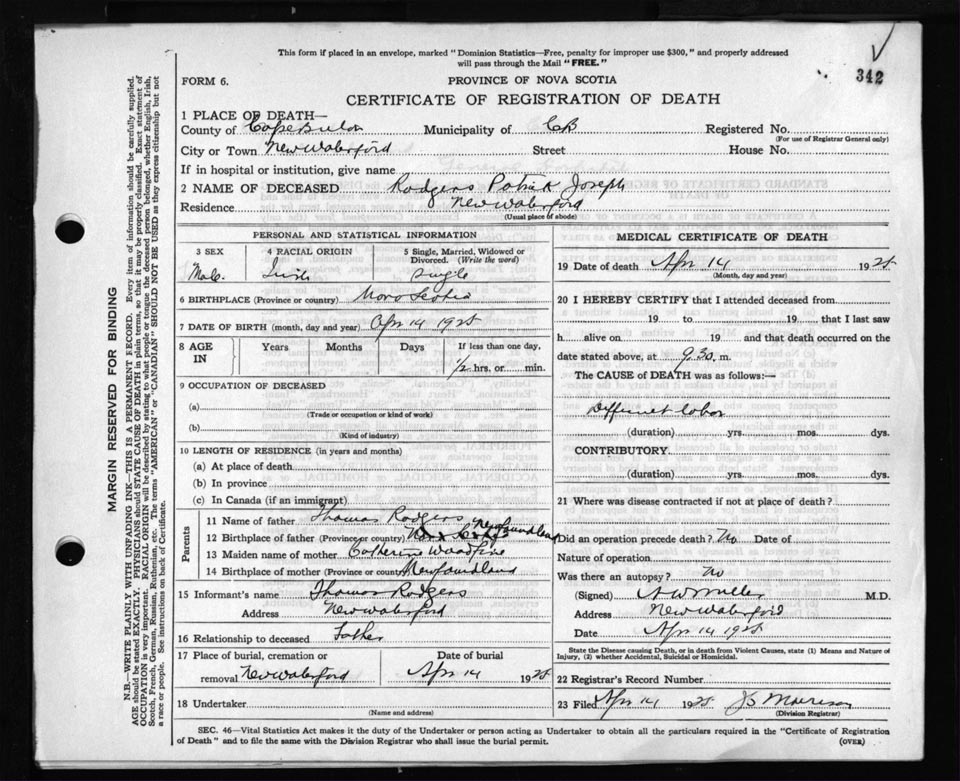 This form if placed in an envelope, marked "Dominion Statistics—Free, penalty for improper use $300," and properly addressed
will pass through the Mail "FREE."
342
FORM 6.
PROVINCE OF NOVA SCOTIA
CERTIFICATE OF REGISTRATION OF DEATH
1 PLACE OF DEATH—
County of Cape Breton Municipality of CB Registered No.
(For use of Registrar General only)
City or Town New Waterford Street House No.
If in hospital or institution, give name
2 NAME OF DECEASED Rodgers Patrick Joseph
Residence New Waterford
(Usual place of abode)
PERSONAL AND STATISTICAL INFORMATION
3 SEX
Male
4 RACIAL ORIGIN
Irish
5 Single, Married, Widowed or
Divorced. (Write the word)
single
6 BIRTHPLACE (Province or country) Nova Scotia
7 DATE OF BIRTH (month, day and year) Apr 14 1925
8 AGE
IN
Years Months Days If less than one day,
1/2 hrs. or min.
9 OCCUPATION OF DECEASED
(a)
(Trade or occupation or kind of work)
(b)
(Kind of industry)
10 LENGTH OF RESIDENCE (in years and months)
(a) At place of death
(b) In province
(c) In Canada (if an immigrant)
Parents
11 Name of father Thomas Rodgers
12 Birthplace of father (Province or country) Newfoundland
13 Maiden name of mother Catherine Woodfine
14 Birthplace of mother (Province or country) Newfoundland
15 Informant's name Thomas Rodgers
Address New Waterford
16 Relationship to deceased Father
17 Place of burial, cremation or
removal New Waterford
Date of burial
Apr 14 1925
18 Undertaker
(Name and address)
MEDICAL CERTIFICATE OF DEATH
19 Date of death Apr 14 1925
(Month, day and year)
20 I HEREBY CERTIFY that I attended deceased from
19 to 19 that I last saw
h alive on 19 and that death occurred on the
date stated above, at 9.30 m.
The CAUSE of DEATH was as follows:—
Difficult labor
(duration) yrs. mos. dys.
CONTRIBUTORY
(duration) yrs. mos. dys.
21 Where was disease contracted if not at place of death?
Did an operation precede death? No Date of
Nature of operation
Was there an autopsy? no
(Signed) Miller M.D.
Address New Waterford
Date Apr 14 1925
State the Disease causing Death, or in death from Violent Causes, state (1) Means and Nature of
Injury, (2) whether Accidental, Suicidal or Homicidal.
22 Registrar's Record Number
23 Filed Apr 14 1925 Morrison
(Division Registrar)
SEC. 46—Vital Statistics Act makes it the duty of the Undertaker or person acting as Undertaker to obtain all the particulars required in the "Certificate of Registration
of Death" and to file the same with the Division Registrar who shall issue the burial permit.
(OVER)
MARGIN RESERVED FOR BINDING
N.B.—WRITE PLAINLY WITH UNFADING INK—THIS IS A PERMANENT RECORD. Every item of information should be carefully supplied.
AGE should be stated EXACTLY. PHYSICIANS should STATE CAUSE OF DEATH in plain terms, so that it may be properly classified. Exact statement of
OCCUPATION is very important. RACIAL ORIGIN will be described by stating to what people or tongue the deceased person belonged, whether English, Irish,
Scotch, French, German, Russian, Ruthenian, etc. The terms "AMERICAN" or "CANADIAN" SHOULD NOT BE USED as they express citizenship but not
a race or people. See instructions on back of Certificate.